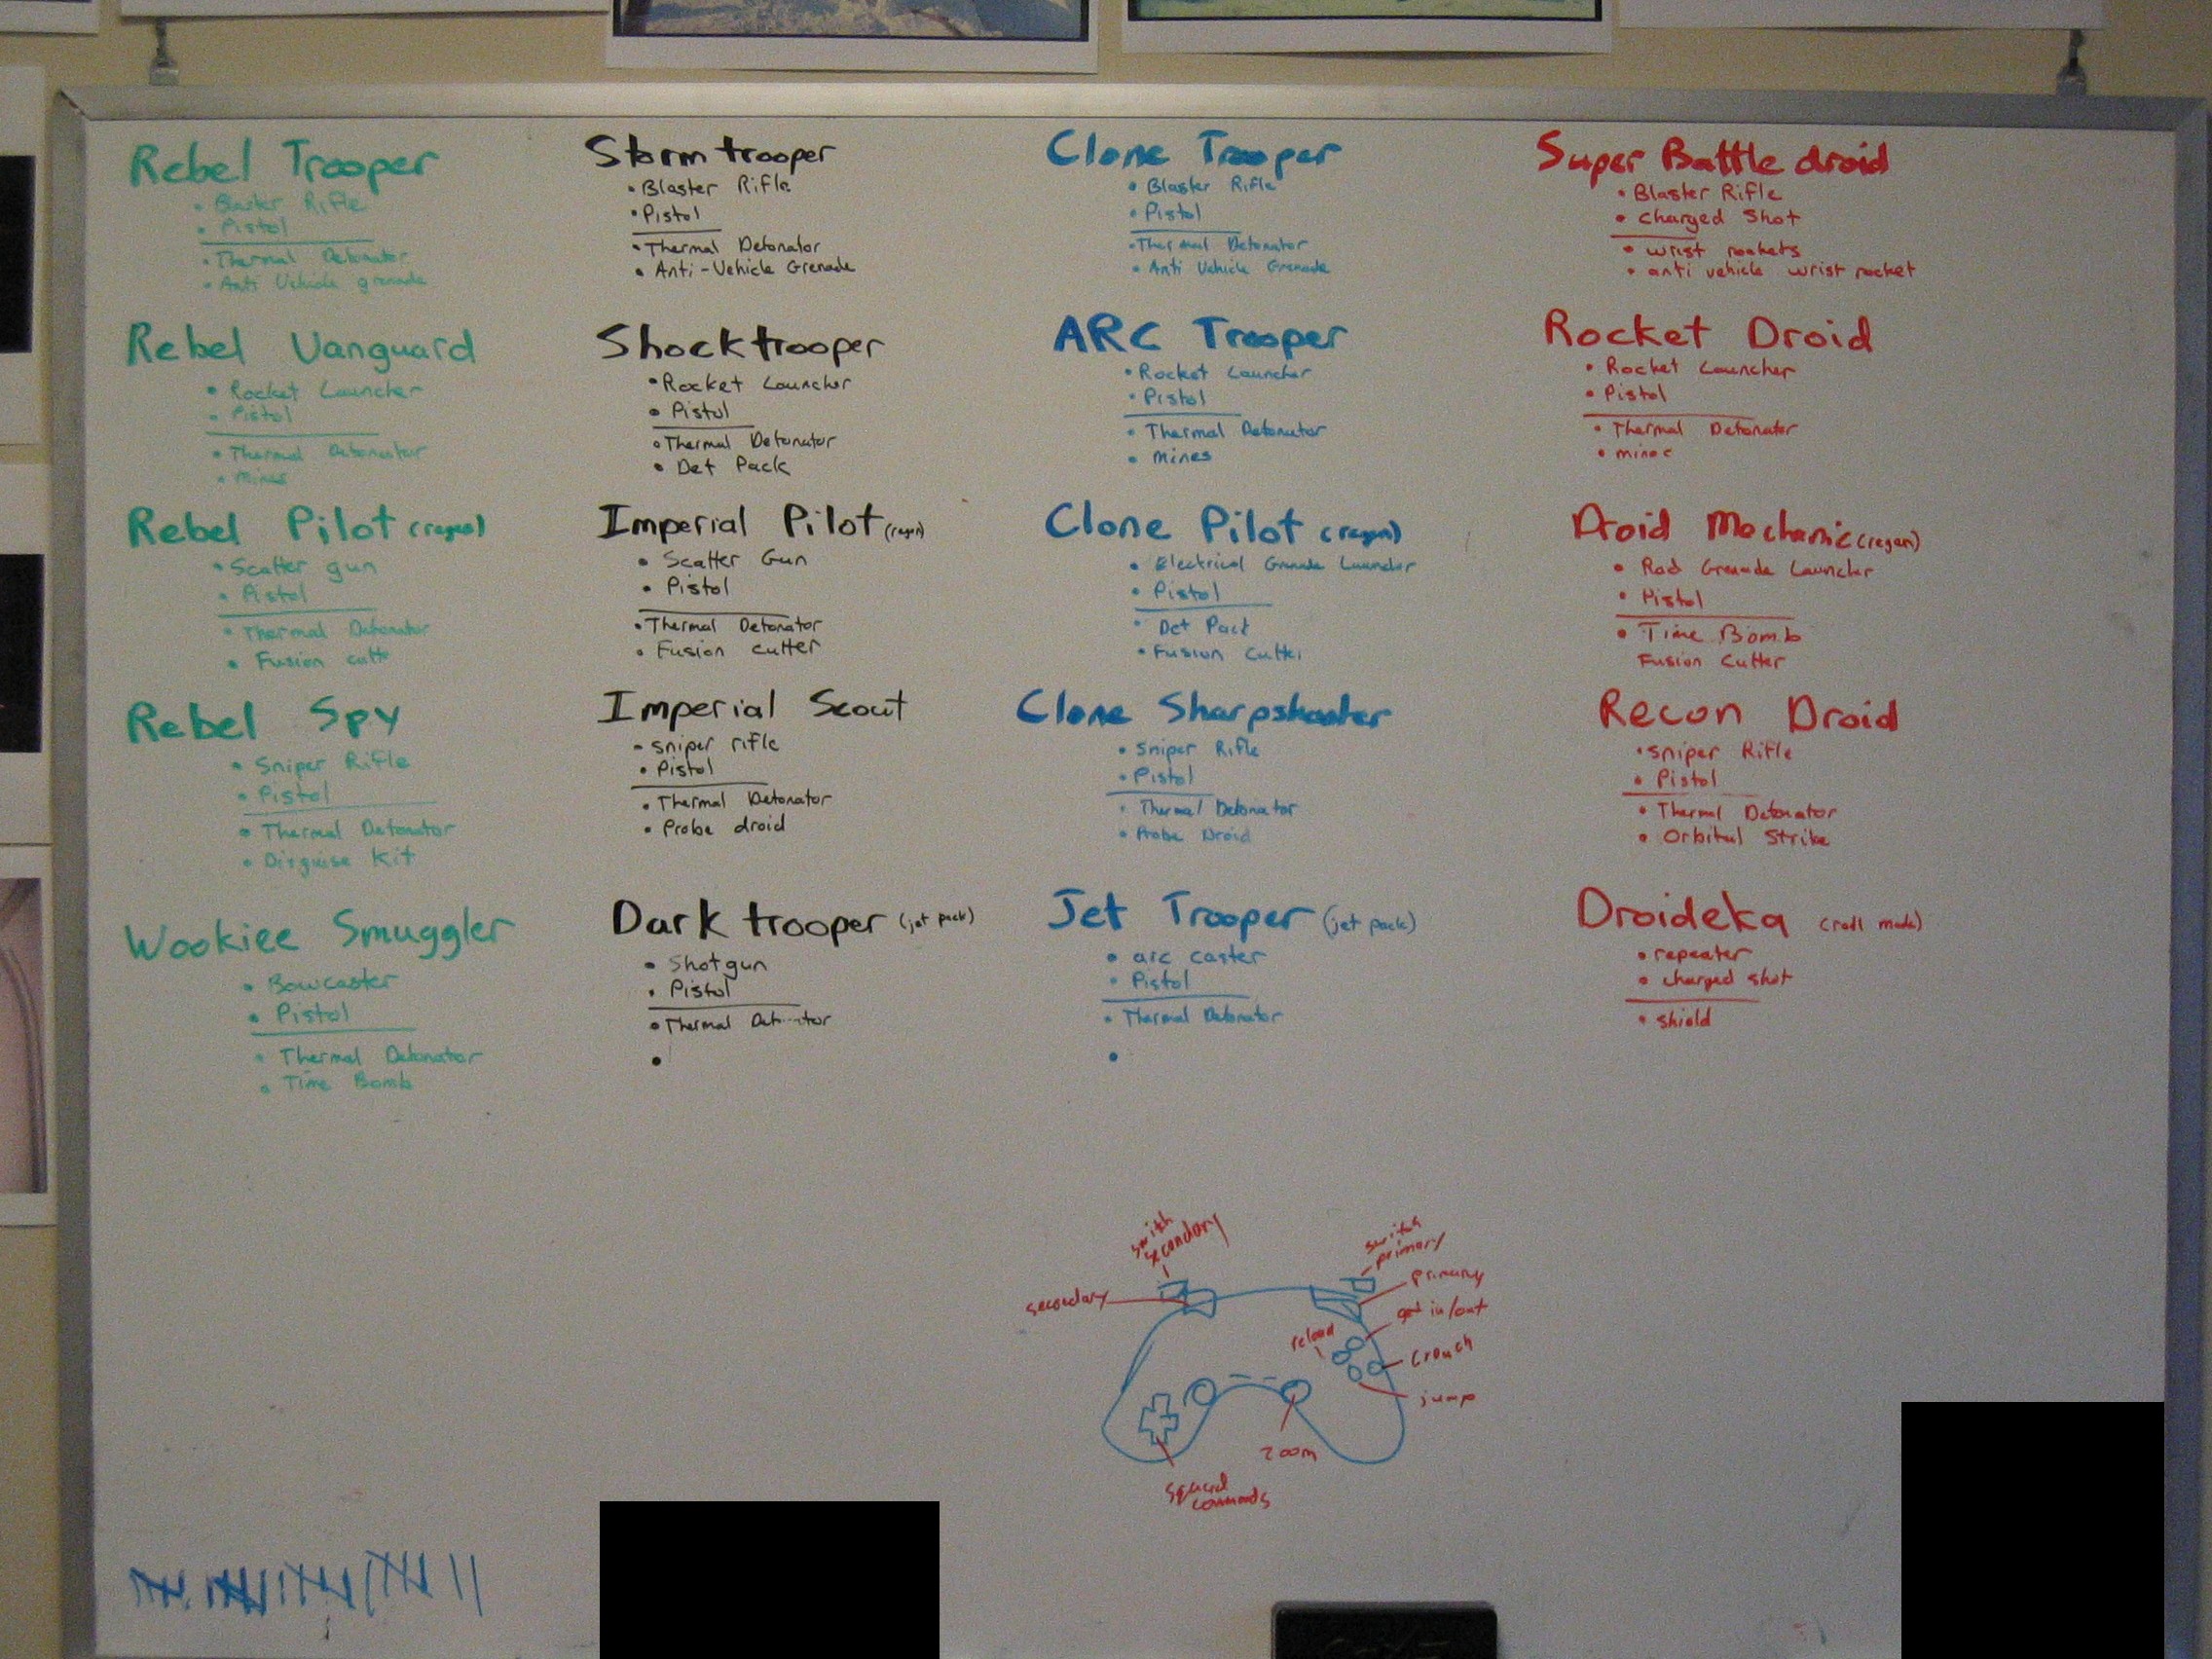 Rebel Trooper
• Blaster Rifle
• Pistol
• Thermal Detonator
• Anti Vehicle grenade
Rebel Vanguard
• Rocket Launcher
• Pistol
• Thermal Detonator
• Mines
Rebel Pilot (regen)
• Scatter gun
• Pistol
• Thermal Detonator
• Fusion cutte
Rebel Spy
• Sniper Rifle
• Pistol
• Thermal Detonator
• Disguise Kit
Wookiee Smuggler
• Bowcaster
• Pistol
• Thermal Detonator
• Time Bomb
Storm trooper
• Blaster Rifle
• Pistol
• Thermal Detonator
• Anti-Vehicle Grenade
Shock trooper
• Rocket Launcher
• Pistol
• Thermal Detonator
• Det Pack
Imperial Pilot (regen)
• Scatter Gun
• Pistol
• Thermal Detonator
• Fusion cutter
Imperial Scout
• sniper rifle
• Pistol
• Thermal Detonator
• Probe droid
Dark trooper (jet pack)
• Shotgun
• Pistol
• Thermal
•
Clone Trooper
• Blaster Rifle
• Pistol
• Thermal Detonator
• Anti Vehicle Grenade
ARC Trooper
• Rocket Launcher
• Pistol
• Thermal Detonator
• mines
Clone Pilot (regen)
• Electrical Grenade Launcher
• Pistol
• Det Pack
• Fusion Cutter
Clone Sharpshooter
• Sniper Rifle
• Pistol
• Thermal Detonator
• Probe Droid
Jet Trooper (jet pack)
• arc caster
• Pistol
• Thermal Detonator
•
Super Battle droid
• Blaster Rifle
• Charged Shot
• wrist rockets
• anti vehicle wrist rocket
Rocket Droid
• Rocket Launcher
• Pistol
• Thermal Detonator
• mines
Droid Mechanic (regen)
• Rad Grenade Launcher
• Pistol
• Time Bomb
Fusion Cutter
Recon Droid
• Sniper Rifle
• Pistol
• Thermal Detonator
• Orbital Strike
Droideka (roll mode)
• repeater
• charged shot
• shield
switch
secondary
secondary
switch
primary
primary
get in/out
reload
crouch
jump
zoom
squad
commands